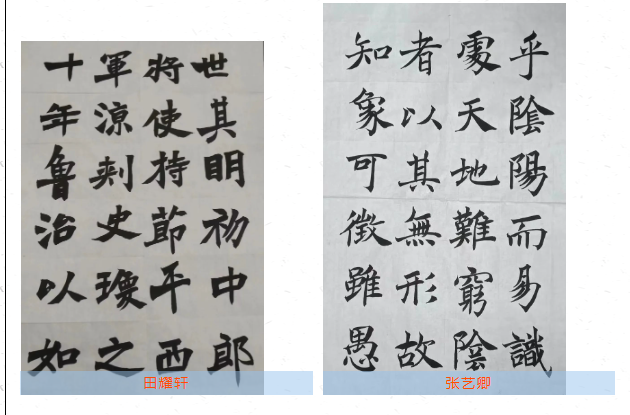 世其明初中郎
将使持節平西
軍涼刺史瓊之
十年魯治以如
田耀轩
乎陰陽而易識
處天地難窮陰
者以其無形故
知象可徵雖愚
张艺卿